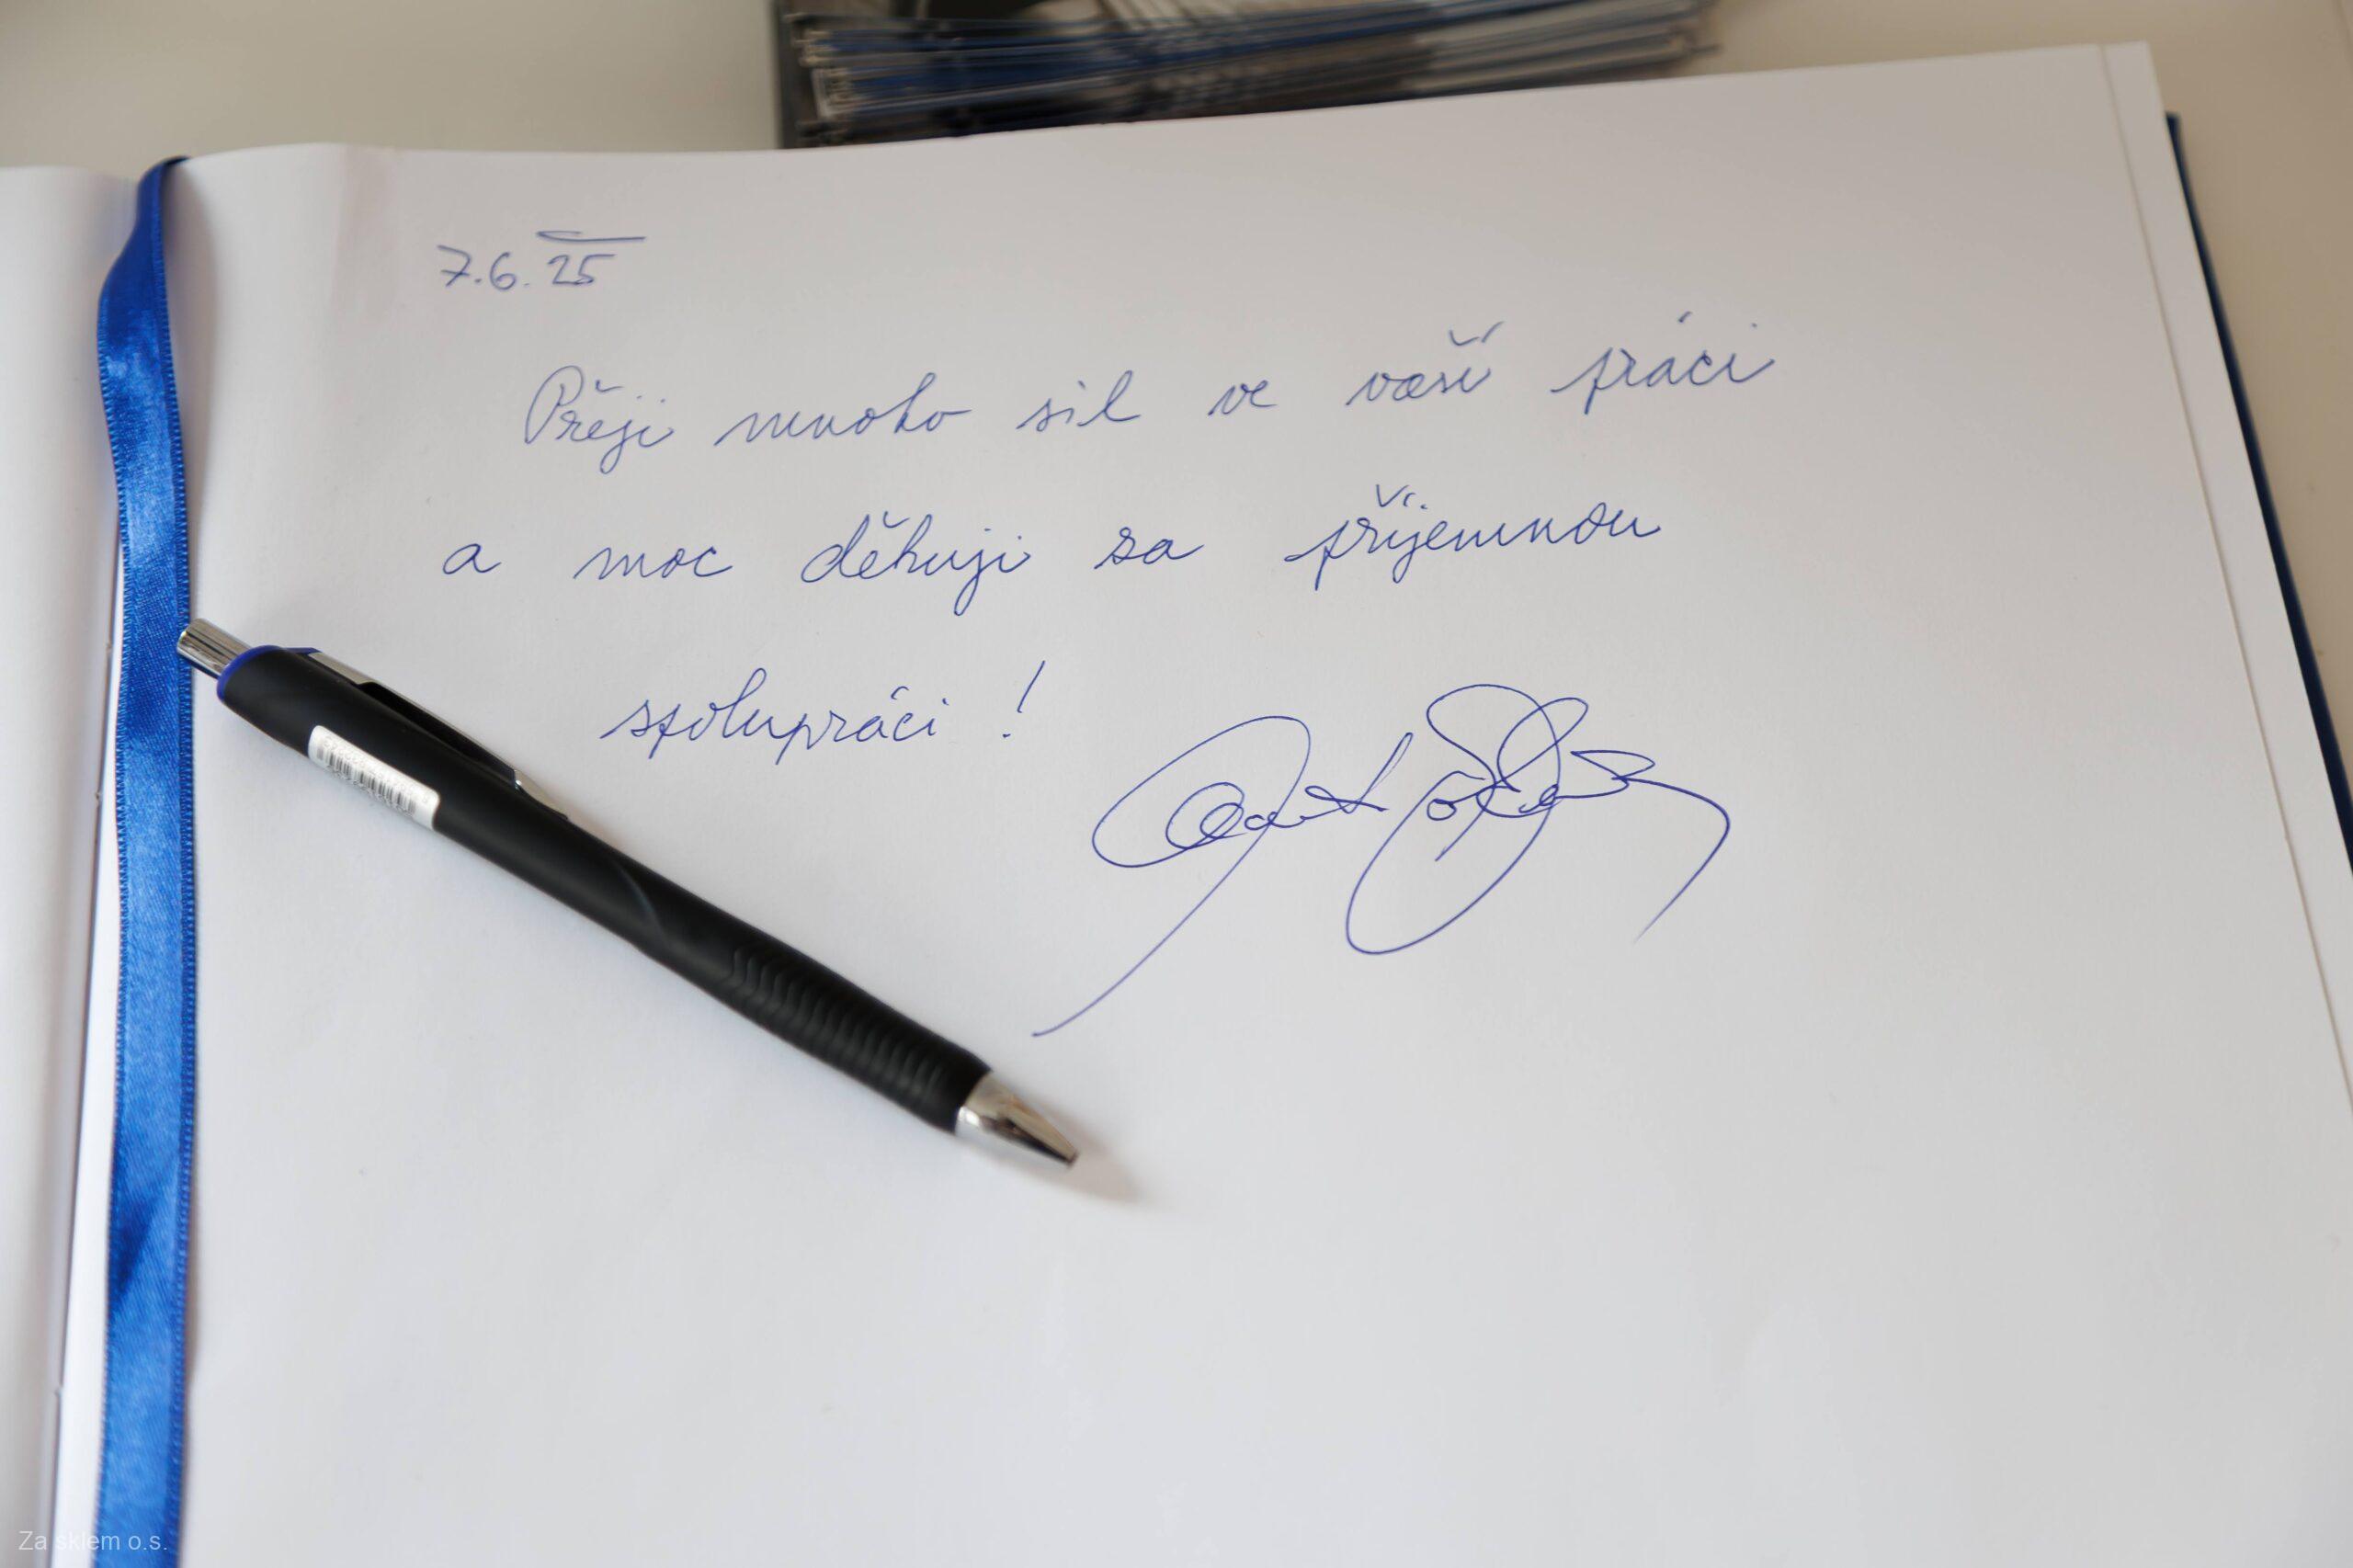 7.6.25
Přeji mnoho sil ve vaší práci
a moc děkuji za příjemnou
spolupráci !
Za sklem o.s.